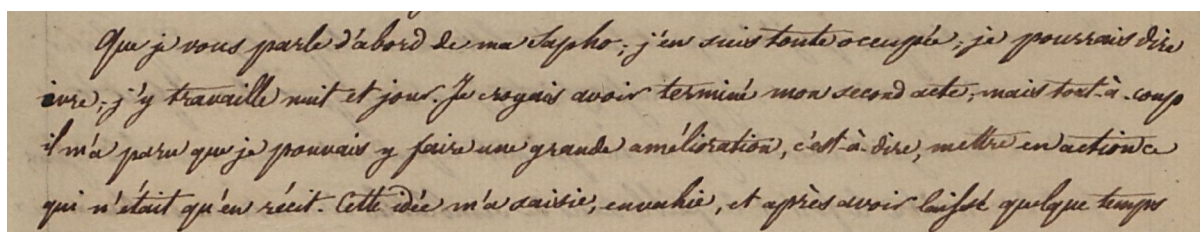 Que je vous parle d'abord de ma Sapho; j'en suis toute occupée; je pourrais dire
ivre; j'y travaille nuit et jour. Je croyais avoir terminé mon second acte; mais tout-à-coup
il m'a paru que je pouvais y faire une grande amélioration, c'est-à-dire, mettre en action ce
qui n'était qu'en récit. Cette idée m'a saisie, envahie, et après avoir laissé quelque temps